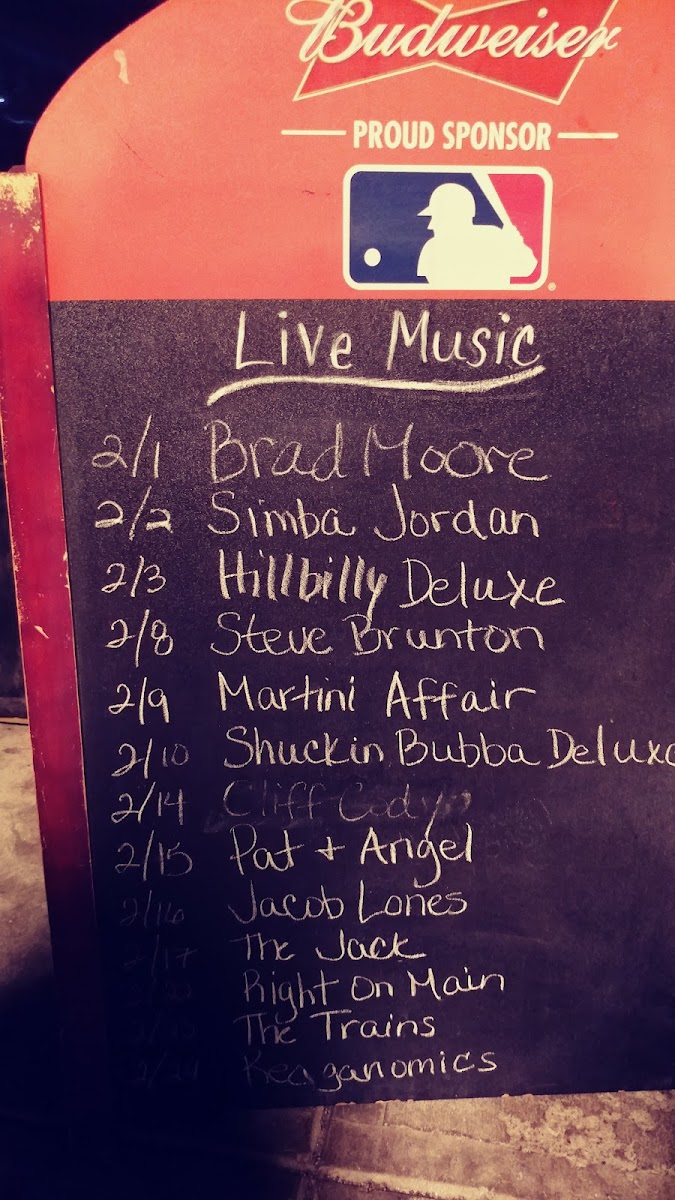 Budweiser
PROUD SPONSOR
Live Music
2/1 Brad Moore
2/2 Simba Jordan
2/3 Hillbilly Deluxe
2/8 Steve Brunton
2/9 Martini Affair
2/10 Shuckin Bubba Deluxe
2/14 Cliff Cody
2/15 Pat + Angel
2/16 Jacob Lones
2/17 The Jack
Right On Main
The Trains
Reaganomics